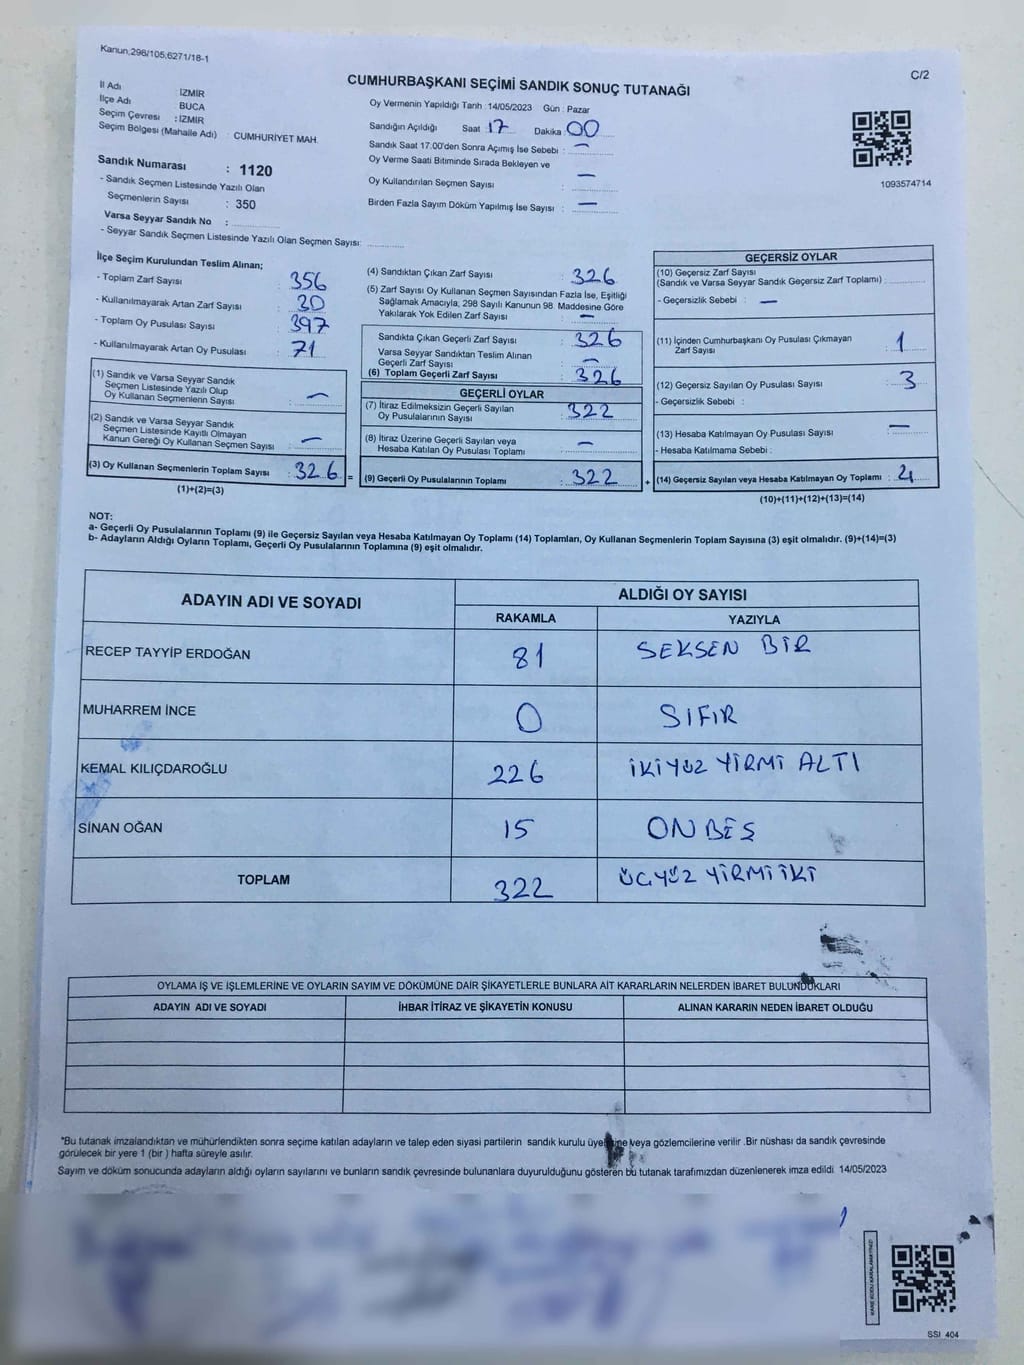 Kanun,298/105,6271/18-1
C/2
CUMHURBAŞKANI SEÇİMİ SANDIK SONUÇ TUTANAĞI
İl Adı : İZMİR
İlçe Adı : BUCA
Seçim Çevresi : İZMİR
Seçim Bölgesi (Mahalle Adı) : CUMHURİYET MAH.
Sandık Numarası : 1120
- Sandık Seçmen Listesinde Yazılı Olan
Seçmenlerin Sayısı : 350
Varsa Seyyar Sandık No :
- Seyyar Sandık Seçmen Listesinde Yazılı Olan Seçmen Sayısı:
Oy Vermenin Yapıldığı Tarih : 14/05/2023 Gün : Pazar
Sandığın Açıldığı Saat : 17 Dakika : 00
Sandık Saat 17:00'den Sonra Açımış İse Sebebi : —
Oy Verme Saati Bitiminde Sırada Bekleyen ve
Oy Kullandırılan Seçmen Sayısı : —
Birden Fazla Sayım Döküm Yapılmış İse Sayısı : —
1093574714
İlçe Seçim Kurulundan Teslim Alınan;
- Toplam Zarf Sayısı : 356
- Kullanılmayarak Artan Zarf Sayısı : 30
- Toplam Oy Pusulası Sayısı : 397
- Kullanılmayarak Artan Oy Pusulası : 71
(1) Sandık ve Varsa Seyyar Sandık
Seçmen Listesinde Yazılı Olup
Oy Kullanan Seçmenlerin Sayısı : —
(2) Sandık ve Varsa Seyyar Sandık
Seçmen Listesinde Kayıtlı Olmayan
Kanun Gereği Oy Kullanan Seçmen Sayısı : —
(3) Oy Kullanan Seçmenlerin Toplam Sayısı : 326 =
(1)+(2)=(3)
(4) Sandıktan Çıkan Zarf Sayısı : 326
(5) Zarf Sayısı Oy Kullanan Seçmen Sayısından Fazla İse, Eşitliği
Sağlamak Amacıyla, 298 Sayılı Kanunun 98. Maddesine Göre
Yakılarak Yok Edilen Zarf Sayısı : —
Sandıkta Çıkan Geçerli Zarf Sayısı : 326
Varsa Seyyar Sandıktan Teslim Alınan
Geçerli Zarf Sayısı : —
(6) Toplam Geçerli Zarf Sayısı : 326
GEÇERLİ OYLAR
(7) İtiraz Edilmeksizin Geçerli Sayılan
Oy Pusulalarının Sayısı : 322
(8) İtiraz Üzerine Geçerli Sayılan veya
Hesaba Katılan Oy Pusulası Toplamı : —
(9) Geçerli Oy Pusulalarının Toplamı : 322 +
GEÇERSİZ OYLAR
(10) Geçersiz Zarf Sayısı
(Sandık ve Varsa Seyyar Sandık Geçersiz Zarf Toplamı) :
- Geçersizlik Sebebi : —
(11) İçinden Cumhurbaşkanı Oy Pusulası Çıkmayan
Zarf Sayısı : 1
(12) Geçersiz Sayılan Oy Pusulası Sayısı : 3
- Geçersizlik Sebebi :
(13) Hesaba Katılmayan Oy Pusulası Sayısı : —
- Hesaba Katılmama Sebebi :
(14) Geçersiz Sayılan veya Hesaba Katılmayan Oy Toplamı : 4
(10)+(11)+(12)+(13)=(14)
NOT:
a- Geçerli Oy Pusulalarının Toplamı (9) ile Geçersiz Sayılan veya Hesaba Katılmayan Oy Toplamı (14) Toplamları, Oy Kullanan Seçmenlerin Toplam Sayısına (3) eşit olmalıdır. (9)+(14)=(3)
b- Adayların Aldığı Oyların Toplamı, Geçerli Oy Pusulalarının Toplamına (9) eşit olmalıdır.
ADAYIN ADI VE SOYADI ALDIĞI OY SAYISI
RAKAMLA YAZIYLA
RECEP TAYYİP ERDOĞAN 81 SEKSEN BİR
MUHARREM İNCE 0 SIFIR
KEMAL KILIÇDAROĞLU 226 İKİYÜZ YİRMİ ALTI
SİNAN OĞAN 15 ONBEŞ
TOPLAM 322 ÜÇYÜZ YİRMİİKİ
OYLAMA İŞ VE İŞLEMLERİNE VE OYLARIN SAYIM VE DÖKÜMÜNE DAİR ŞİKAYETLERLE BUNLARA AİT KARARLARIN NELERDEN İBARET BULUNDUKLARI
ADAYIN ADI VE SOYADI İHBAR İTİRAZ VE ŞİKAYETİN KONUSU ALINAN KARARIN NEDEN İBARET OLDUĞU
*Bu tutanak imzalandıktan ve mühürlendikten sonra seçime katılan adayların ve talep eden siyasi partilerin sandık kurulu üyelerine veya gözlemcilerine verilir .Bir nüshası da sandık çevresinde
görülecek bir yere 1 (bir ) hafta süreyle asılır.
Sayım ve döküm sonucunda adayların aldığı oyların sayılarını ve bunların sandık çevresinde bulunanlara duyurulduğunu gösteren bu tutanak tarafımızdan düzenlenerek imza edildi 14/05/2023
KARE KODU KARALAMAYINIZ!
SSI 404